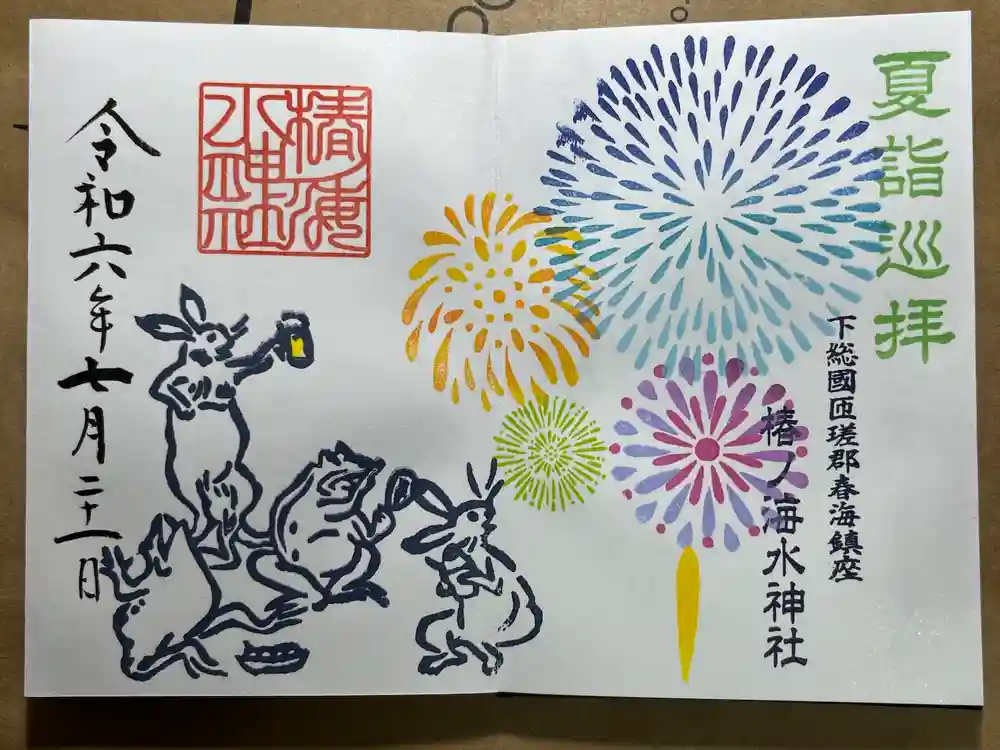 夏詣巡拝
下総國匝瑳郡春海鎮座
椿ノ海水神社
椿海
水神社
令和六年七月二十一日